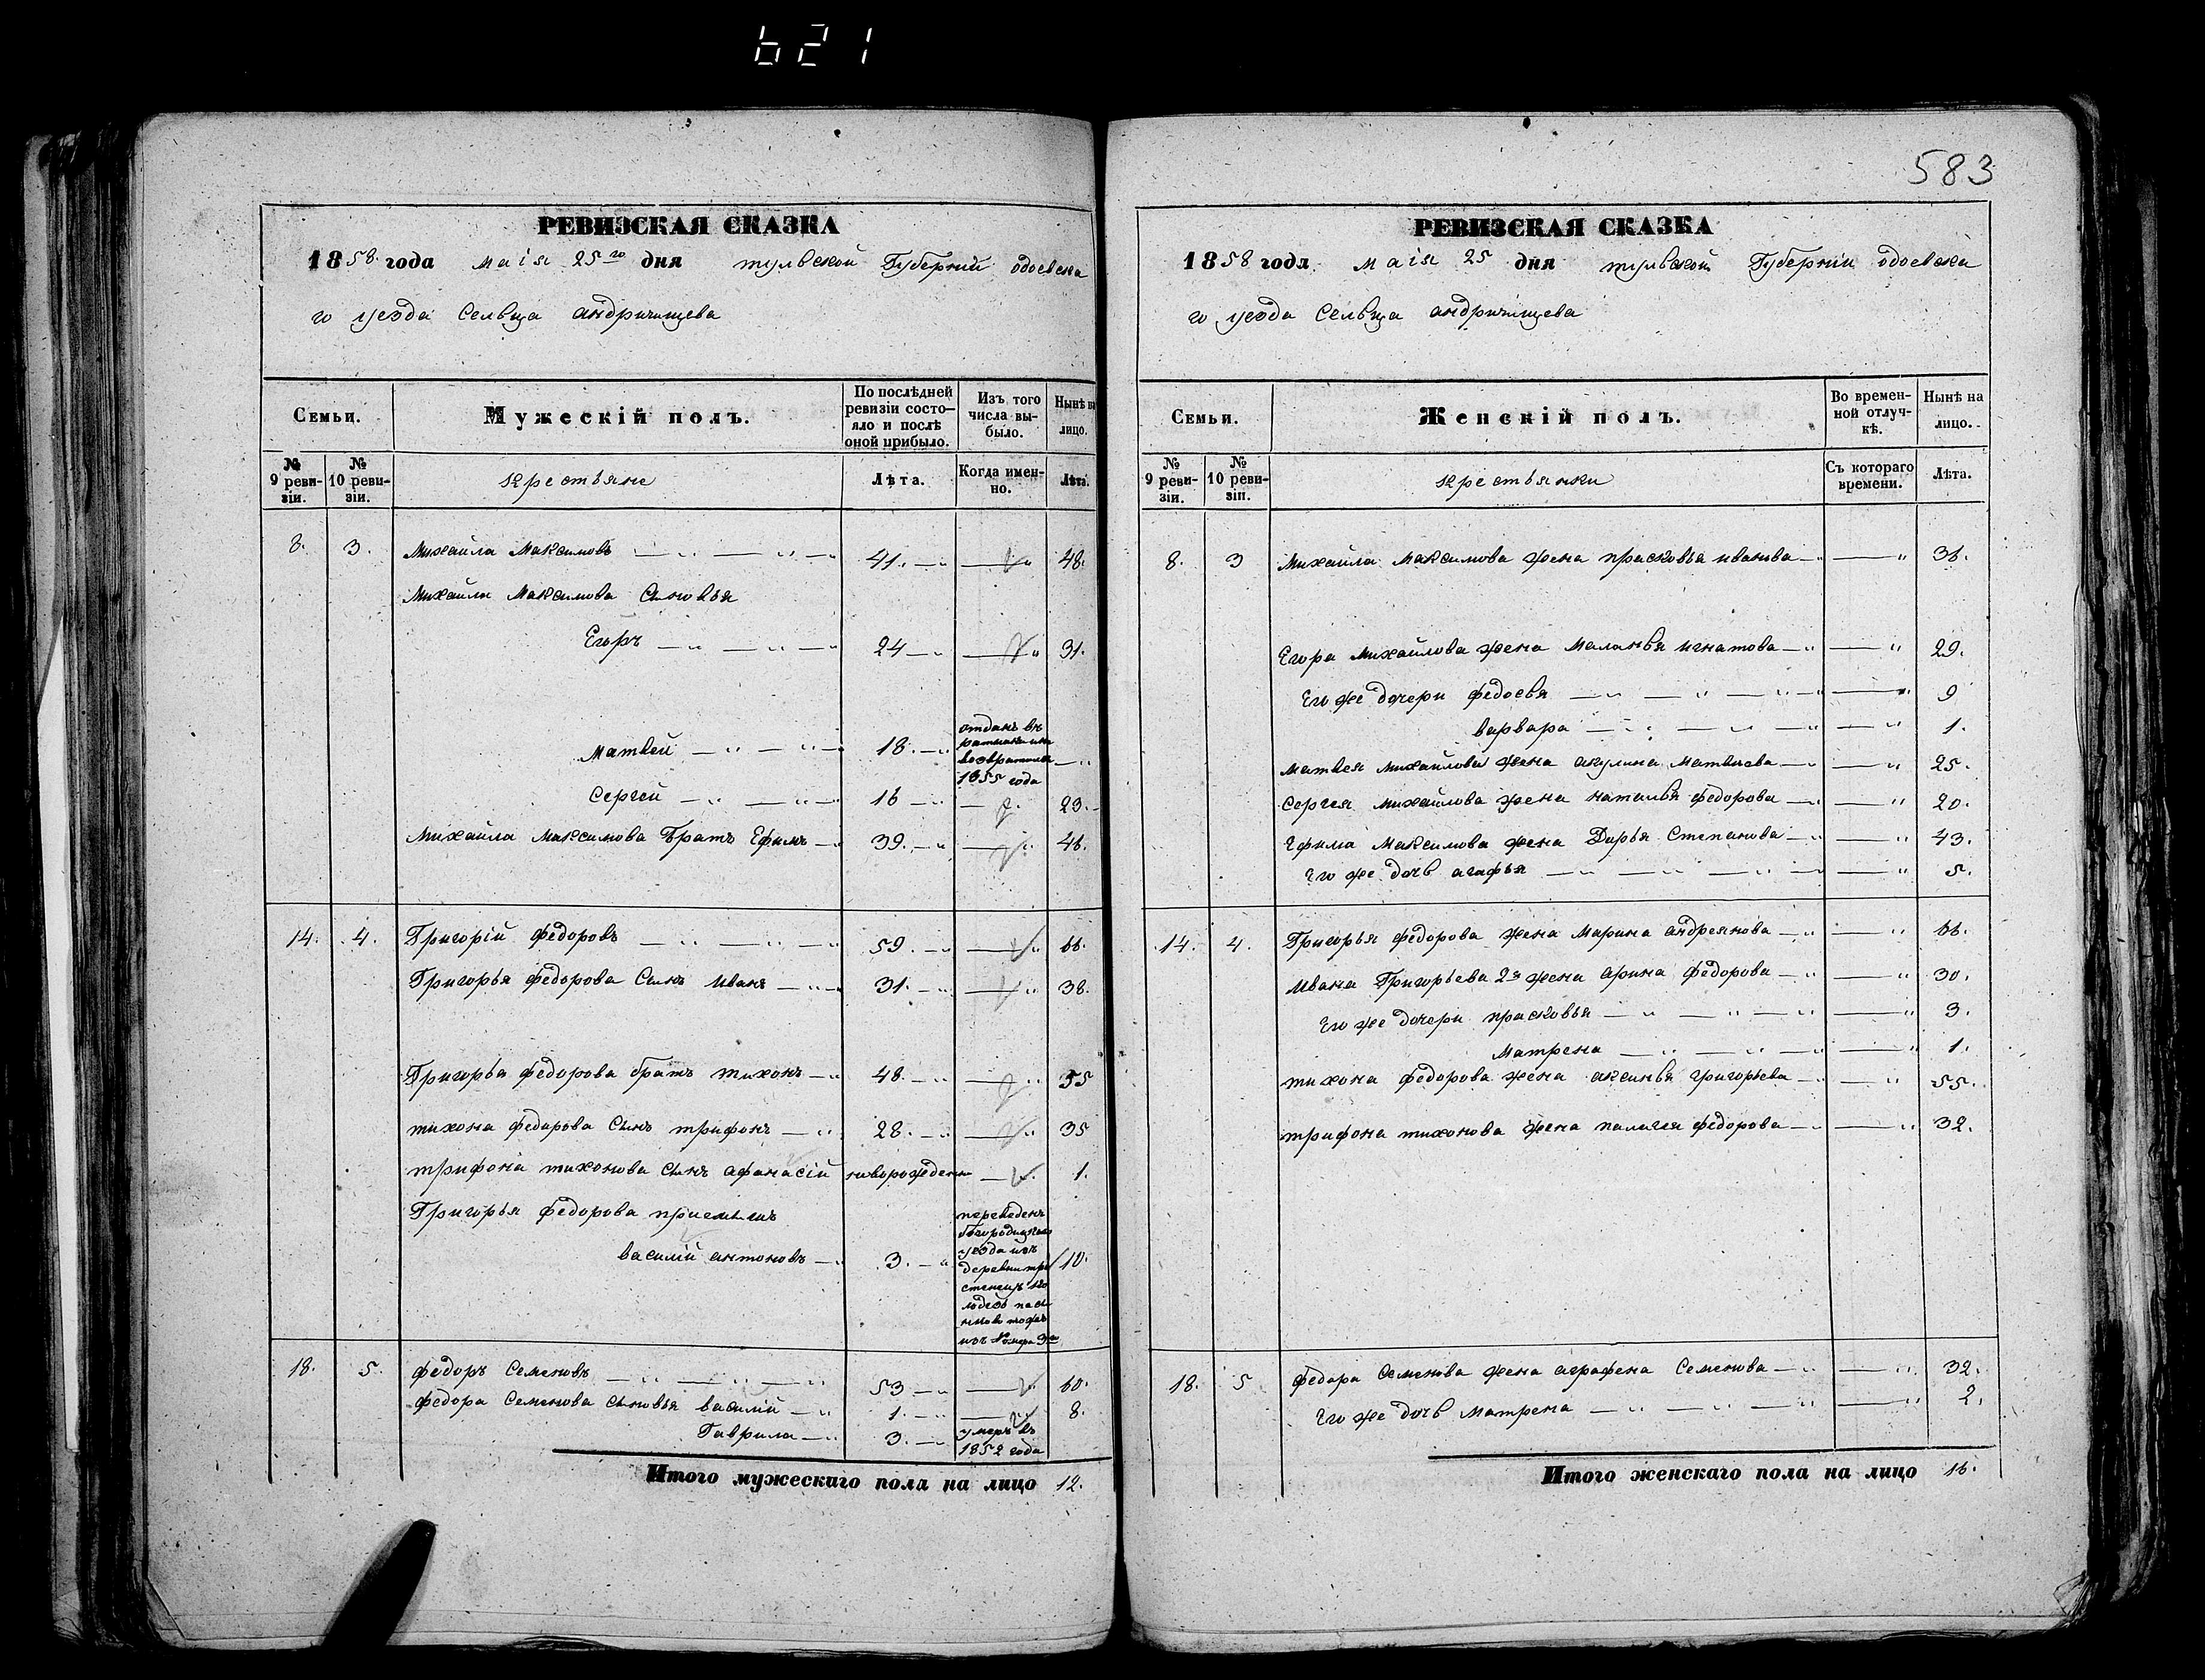 621
РЕВИЗСКАЯ СКАЗКА
1858. года маія 25го дня тульской Губерніи одоевска
го уезда Сельца андричищева
Семьи.
Мужескій полъ.
По послѣдней ревизіи состо-
яло и послѣ
оной прибыло.
Изъ того
числа вы-
было.
Нынѣ на
лицо.
№
9 реви-
зіи.
№
10 реви-
зіи.
крестьяне
Лѣта.
Когда имен-
но.
Лѣта.
8. 3. Михаила Максимовъ 41. 48.
Михаила Максимова Сыновья
Егоръ 24 31.
Матвей 18. отданъ въ 1855 года
Сергей 16 23.
Михаила Максимова Братъ Ефимъ 39. 46.
14. 4. Григорій Федоровъ 59. 66.
Григорья Федорова Сынъ Иванъ 31. 38.
Григорья Федорова братъ тихонъ 48. 55
тихона Федорова Сынъ трифонъ 28. 35
трифона тихонова сынъ афанасій новорожденъ 1.
Григорья Федорова приемышъ
василий антоновъ 3. 10.
переведенъ
богородицкаго
уезда изъ
деревни
18. 5. Федоръ Семеновъ 53 60.
Федора Семенова сыновья василий 1. 8.
Гаврила 3. умеръ въ
1852 года
Итого мужескаго пола на лицо 12.
583
РЕВИЗСКАЯ СКАЗКА
1858 года. маія 25 дня тульской Губерніи одоевска
го уезда Сельца андричищева
Семьи.
Женскій полъ.
Во времен-
ной отлуч-
кѣ.
Нынѣ на
лицо.
№
9 реви-
зіи.
№
10 реви-
зіи.
крестьянки
Съ котораго
времени.
Лѣта.
8. 3 Михайла Максимова жена прасковья иванова 36.
Егора Михайлова жена Маланья игнатова 29.
Его же дочери федосья 9
варвара 1.
Матвея Михайлова жена акулина Матвиева 25.
Сергея Михайлова жена наталья федорова 20.
Ефима Максимова жена Дарья Степанова 43.
Его же дочь агафья 5.
14. 4. Григорья Федорова жена Марина андреянова 66.
Ивана Григорьева 2я жена арина Федорова 30.
Его же дочери прасковья 3.
Матрена 1.
тихона Федорова жена аксинья григорьева 55.
трифона тихонова жена палагея федорова 32.
18. 5 Федора Семенова жена аграфена Семенова 32.
Его же дочь Матрена 2.
Итого женскаго пола на лицо 16.